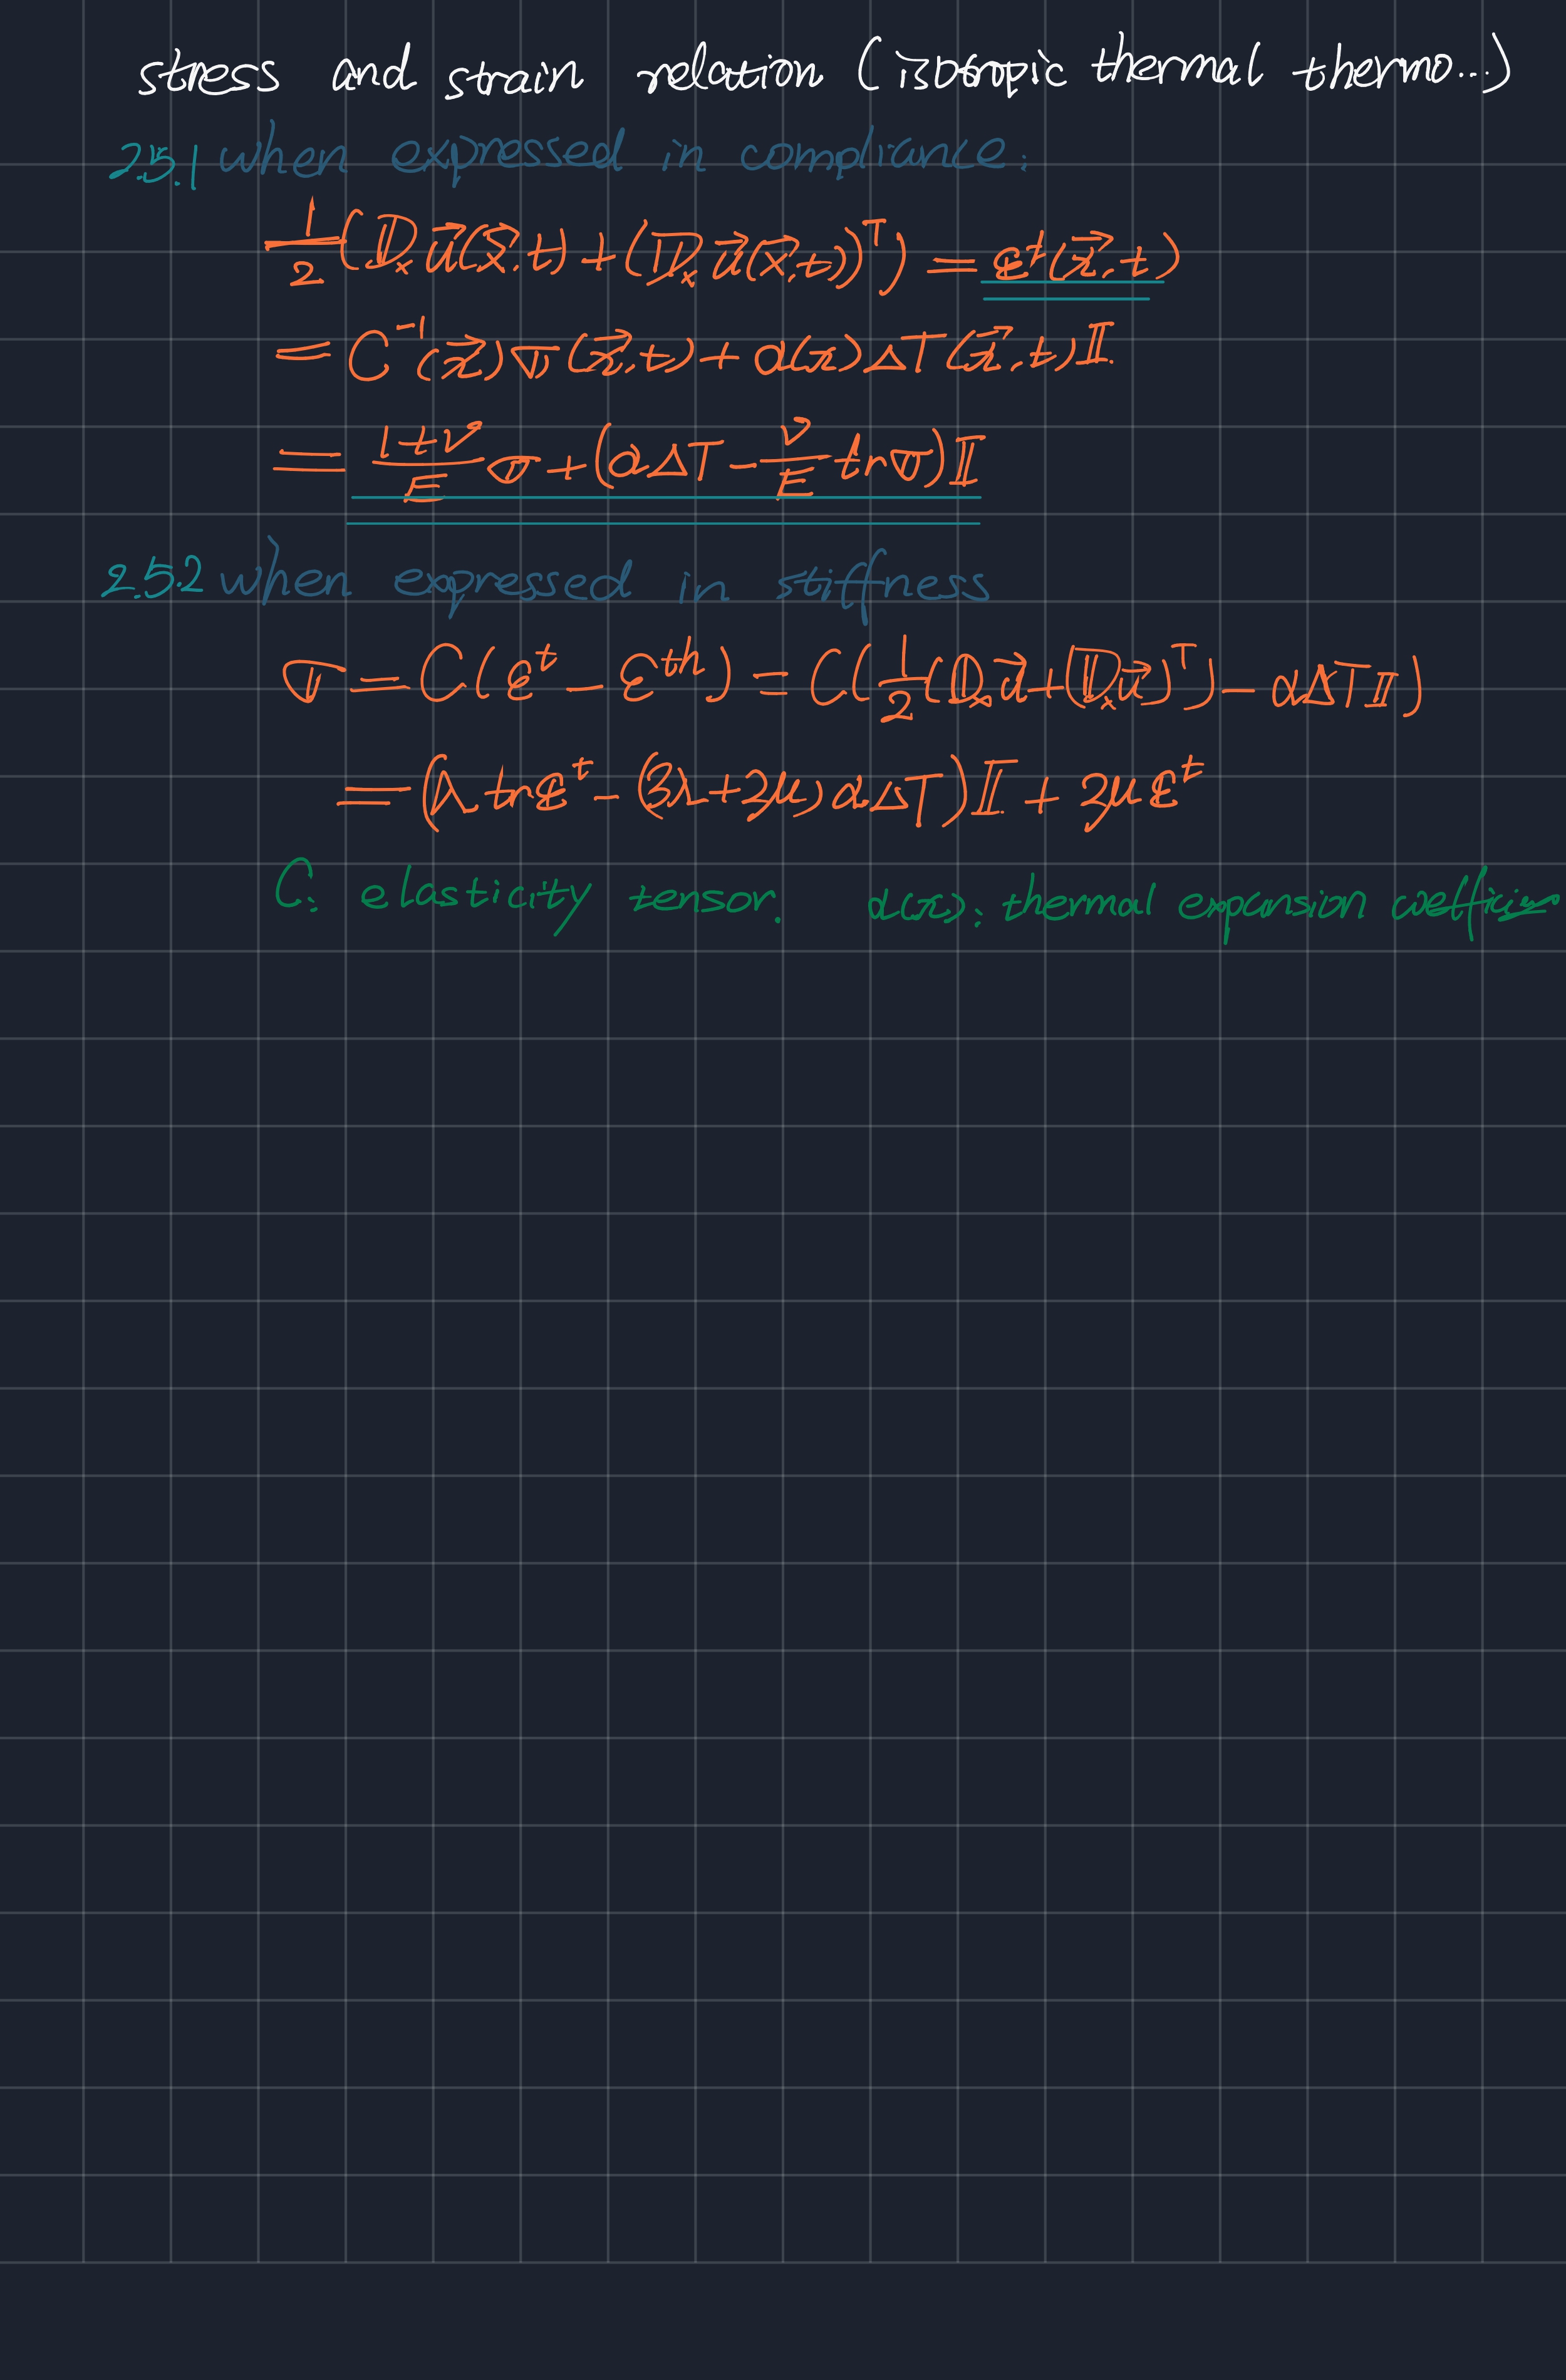 stress and strain relation (isotropic thermal thermo...)
2.5.1 when expressed in compliance:
1/2 (𝔻ₓ u⃗(x⃗,t) + (𝔻ₓ u⃗(x⃗,t))ᵀ) = εᵗ(x⃗,t)
= C⁻¹(x⃗) σ(x⃗,t) + α(x) ΔT(x⃗,t) 𝕀.
= (1+ν)/E σ + (αΔT − ν/E tr σ) 𝕀
2.5.2 when expressed in stiffness
σ = C(εᵗ − εᵗʰ) = C(1/2 (𝔻ₓ u⃗ + (𝔻ₓ u⃗)ᵀ) − αΔT 𝕀)
= (λ tr εᵗ − (3λ+2μ) αΔT) 𝕀 + 2μ εᵗ
C: elasticity tensor. α(x): thermal expansion